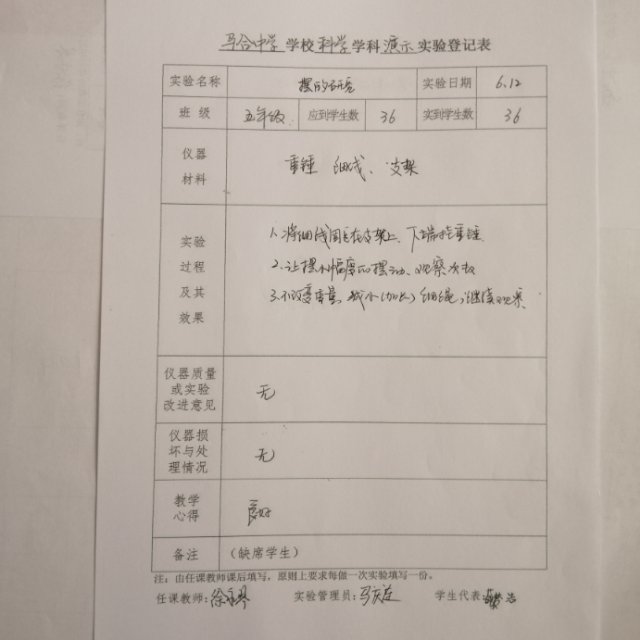 马合中学 学校 科学 学科 演示 实验登记表
实验名称 摆的研究 实验日期 6.12
班 级 五年级 应到学生数 36 实到学生数 36
仪器
材料
重锤 细线、支架
实验
过程
及其
效果
1.将细线固定在支架上、下端挂重锤
2.让摆小幅度的摆动、观察次数
3.不改变重量,减小(加长)细绳,继续观察
仪器质量
或实验
改进意见
无
仪器损
坏与处
理情况
无
教学
心得
良好
备注 (缺席学生)
注:由任课教师课后填写,原则上要求每做一次实验填写一份。
任课教师: 实验管理员: 学生代表: